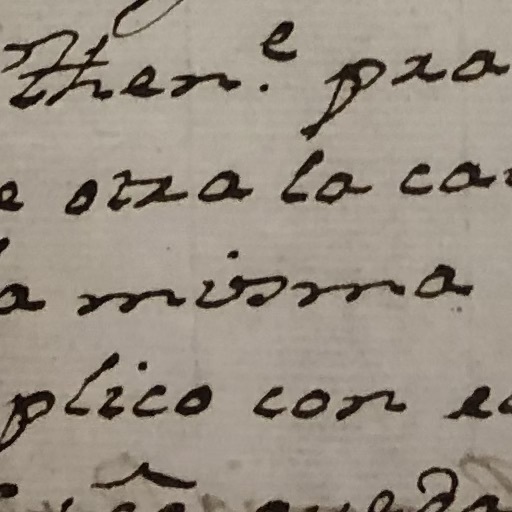 Then.e pra
e otra la ca
la misma
plico con e
queda